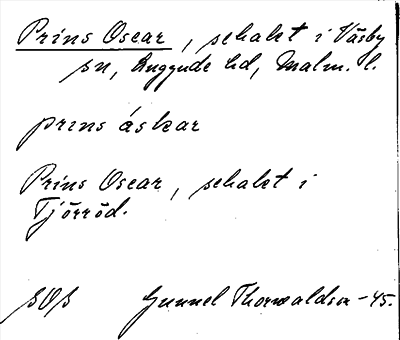 Prins Oscar, schakt i Väsby
sn, Luggude hd, Malm. l.
prins áskar
Prins Oscar, schakt i
Tjörröd.
SOS Gunnel Thorwaldson -45.